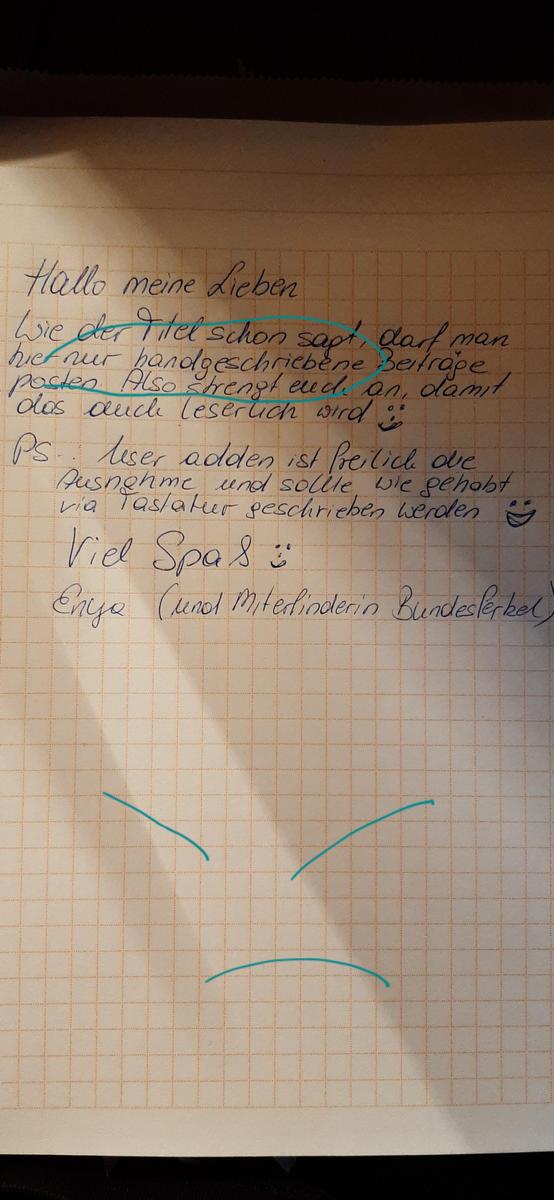 Hallo meine Lieben
Wie der Titel schon sagt, darf man
hier nur handgeschriebene Beiträge
posten. Also strengt euch an, damit
das auch leserlich wird
PS.: User adden ist freilich die
Ausnahme und sollte wie gehabt
via Tastatur geschrieben werden
Viel Spaß
Enya (und Miterfinderin Bundesferkel)